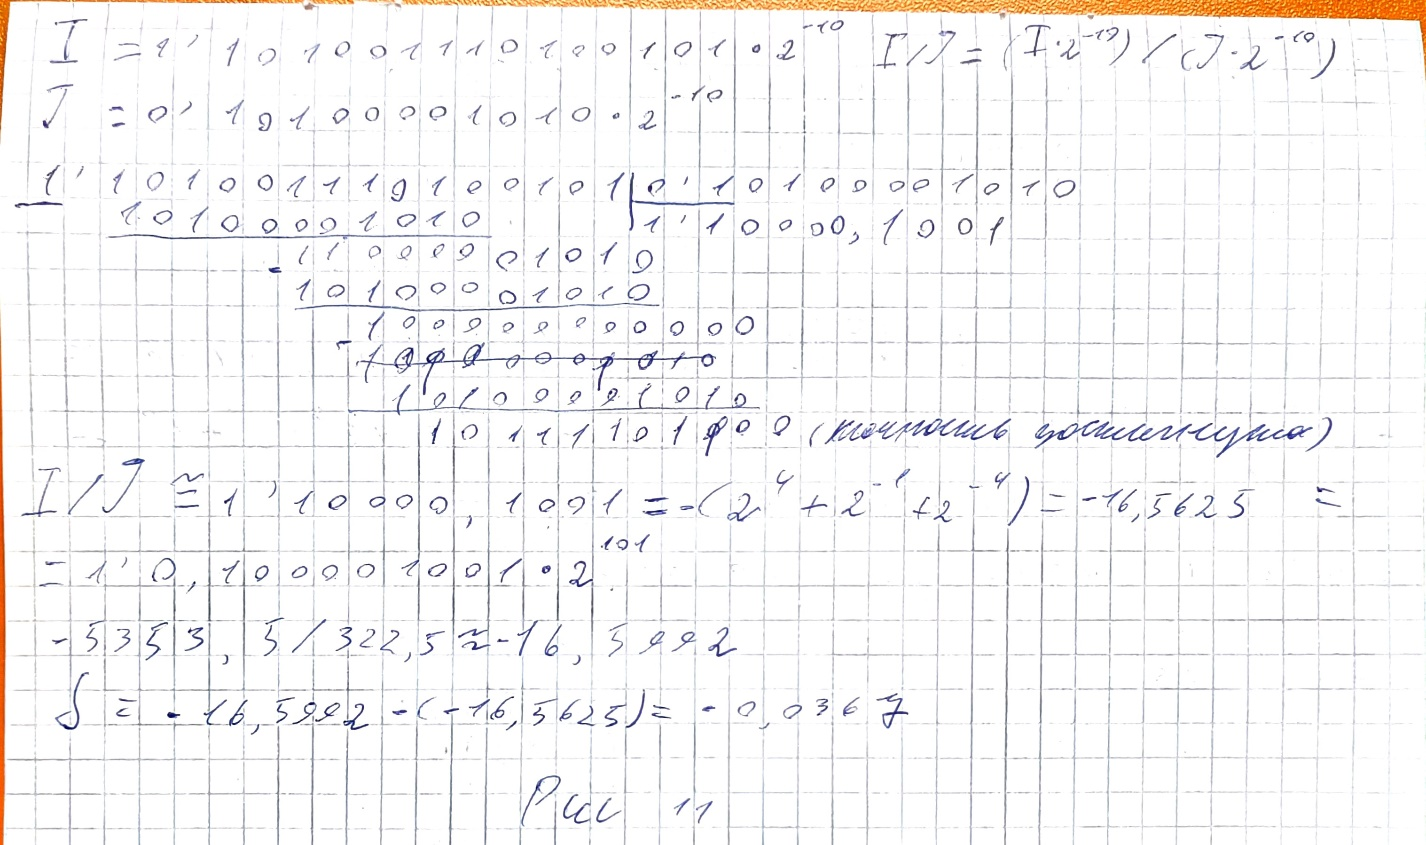 I = 1' 10100111010​0101 · 2⁻¹⁰ I/J = (I·2⁻¹⁰) / (J·2⁻¹⁰)
J = 0' 10100001010 · 2⁻¹⁰
1' 101001110100101 | 0' 10100001010
10100001010 | 1' 10000,1001
- 11000001010
10100001010
- 100000000000
10100001010
10111101000 (точность достигнута)
I/J ≅ 1' 10000,1001 = -(2⁴ + 2⁻¹ + 2⁻⁴) = -16,5625 =
= 1' 0,100001001 · 2¹⁰¹
-5353,5/322,5 ≈ -16,5992
δ = -16,5992 - (-16,5625) = -0,0367
Рис 11